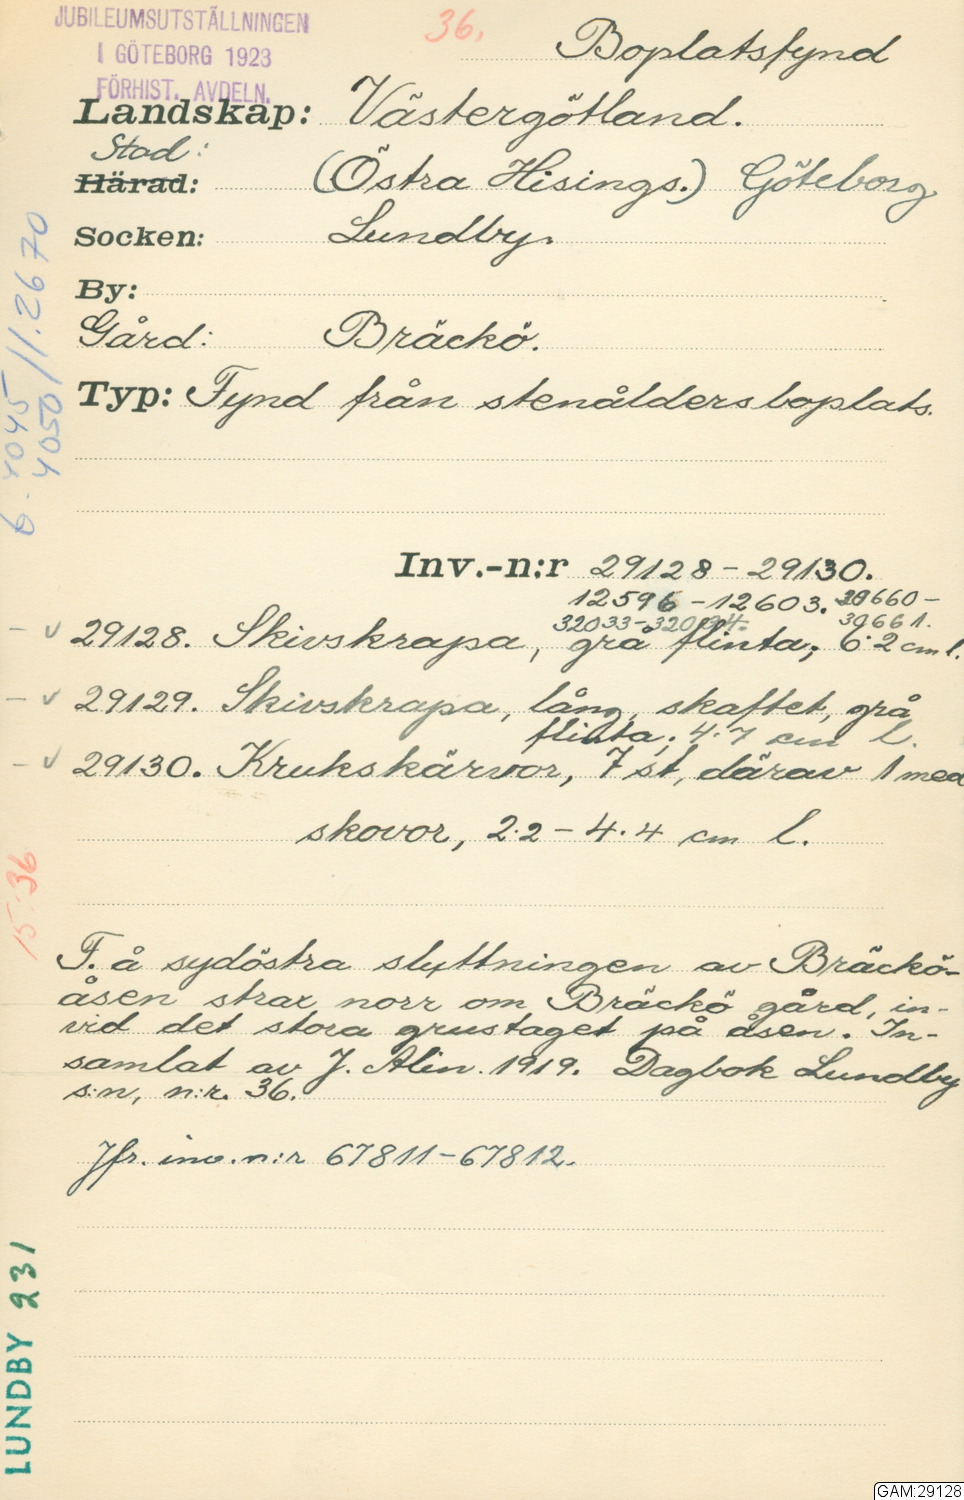 JUBILEUMSUTSTÄLLNINGEN
I GÖTEBORG 1923
FÖRHIST. AVDELN.
36.
Boplatsfynd
Landskap: Västergötland.
Stad:
Härad: (Östra Hisings.) Göteborg
Socken: Lundby.
By:
Gård: Bräckö.
Typ: Fynd från stenåldersboplats.
Inv.-n:r 29128-29130.
12596-12603. 30660-
32033- 30661.
29128. Skivskrapa, grå flinta; 6.2 cm l.
29129. Skivskrapa, lång, skaftet, grå
flinta; 4.7 cm l.
29130. Krukskärvor, 7 st, därav 1 med
skovor, 2.2-4.4 cm l.
F. å sydöstra sluttningen av Bräckö-
åsen strax norr om Bräckö gård, in-
vid det stora grustaget på åsen. In-
samlat av J. Alin. 1919. Dagbok Lundby
s:n, n:r. 36.
Jfr. inv.n:r 67811-67812.
6-4045
4050 / 1.2670
15:36
LUNDBY 231
GAM:29128